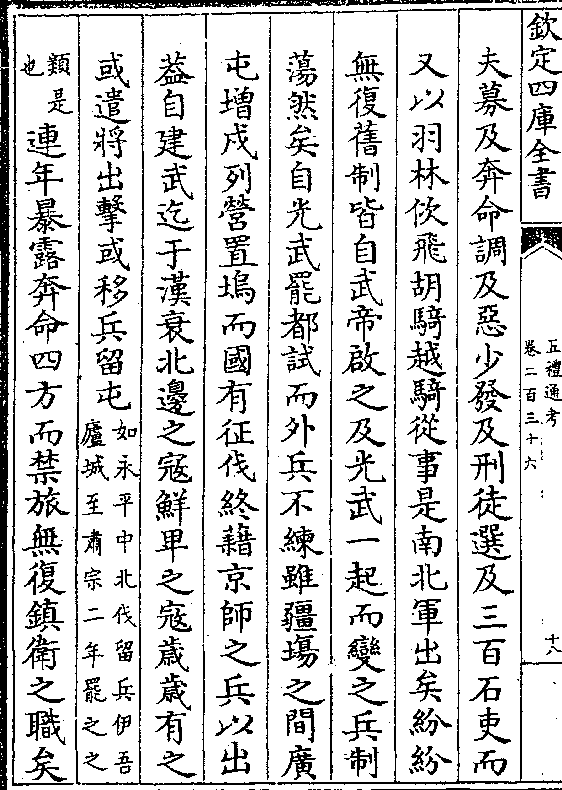 欽定四庫全書
五禮通考
卷二百三十六
十八
夫募及奔命調及惡少發及刑徒選及三百石吏而
又以羽林佽飛胡騎越騎從事是南北軍出矣紛紛
無復舊制皆自武帝啟之及光武一起而變之兵制
蕩然矣自光武罷都試而外兵不練雖疆埸之間廣
屯增戍列營置塢而國有征伐終藉京師之兵以出
葢自建武迄于漢衰北邊之寇鮮卑之寇歲歲有之
或遣將出擊或移兵留屯如永平中北伐留兵伊吾
廬城至肅宗二年罷之之
類是
也連年暴露奔命四方而禁旅無復鎮衛之職矣